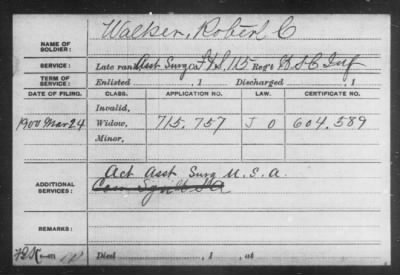 NAME OF SOLDIER: Walker, Robert C
SERVICE: Late rank Asst Surg Co. F&S, 115 Reg't U.S.C Inf
TERM OF SERVICE: Enlisted , 1 Discharged , 1
DATE OF FILING. CLASS. APPLICATION NO. LAW. CERTIFICATE NO.
Invalid,
1900 Mar 24 Widow, 715.757 J O 604.589
Minor,
ADDITIONAL SERVICES: Act Asst Surg U.S.A.
REMARKS:
Died , 1 , at